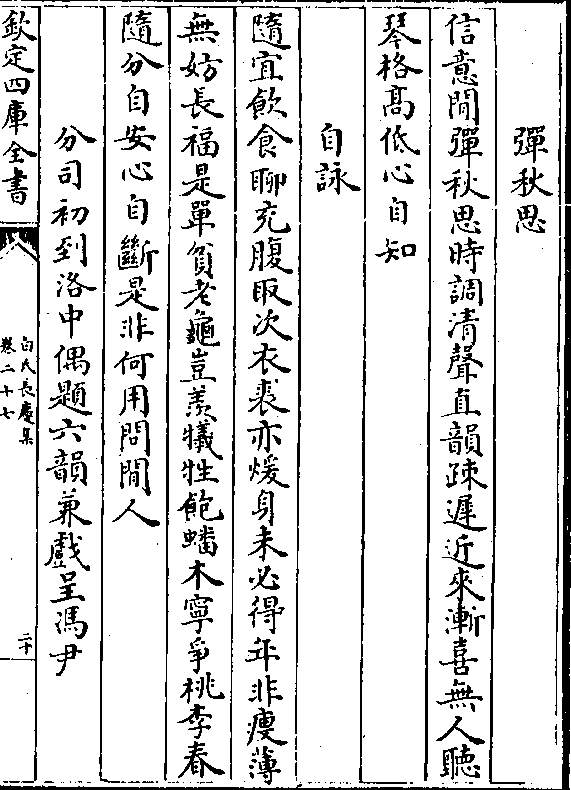 彈秋思
信意閒彈秋思時調清聲直韻疎遲近來漸喜無人聽
琴格髙低心自知
自詠
隨宜飲食聊充腹取次衣裘亦煖身未必得年非瘦薄
無妨長福是單貧老龜豈羨犧牲飽蟠木寧爭桃李春
隨分自安心自斷是非何用問閒人
分司初到洛中偶題六韻兼戲呈馮尹
欽定四庫全書
白氏長慶集
卷二十七
二十